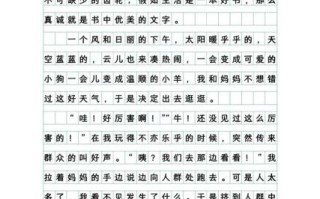 不可缺少的齿轮，假如生活是一本好书，那么
真诚就是书中优美的文字。
一个风和日丽的下午，太阳暖乎乎的，天
空蓝蓝的，云儿也来凑热闹，一会变成可爱的
小狗一会儿变成温顺的小羊，我和妈妈不想错
过这好天气，于是决定出去逛逛。
“哇！好厉害啊！”“牛！还没见过这么厉
害的！”在我玩得不亦乐乎的时候，突然传来
群众的叫好声。“咦？我们去那边看看！”我
拉着妈妈的手边说边向人群处跑去。可是人太
多了，我看不见发生了什么。于是挤到人群中